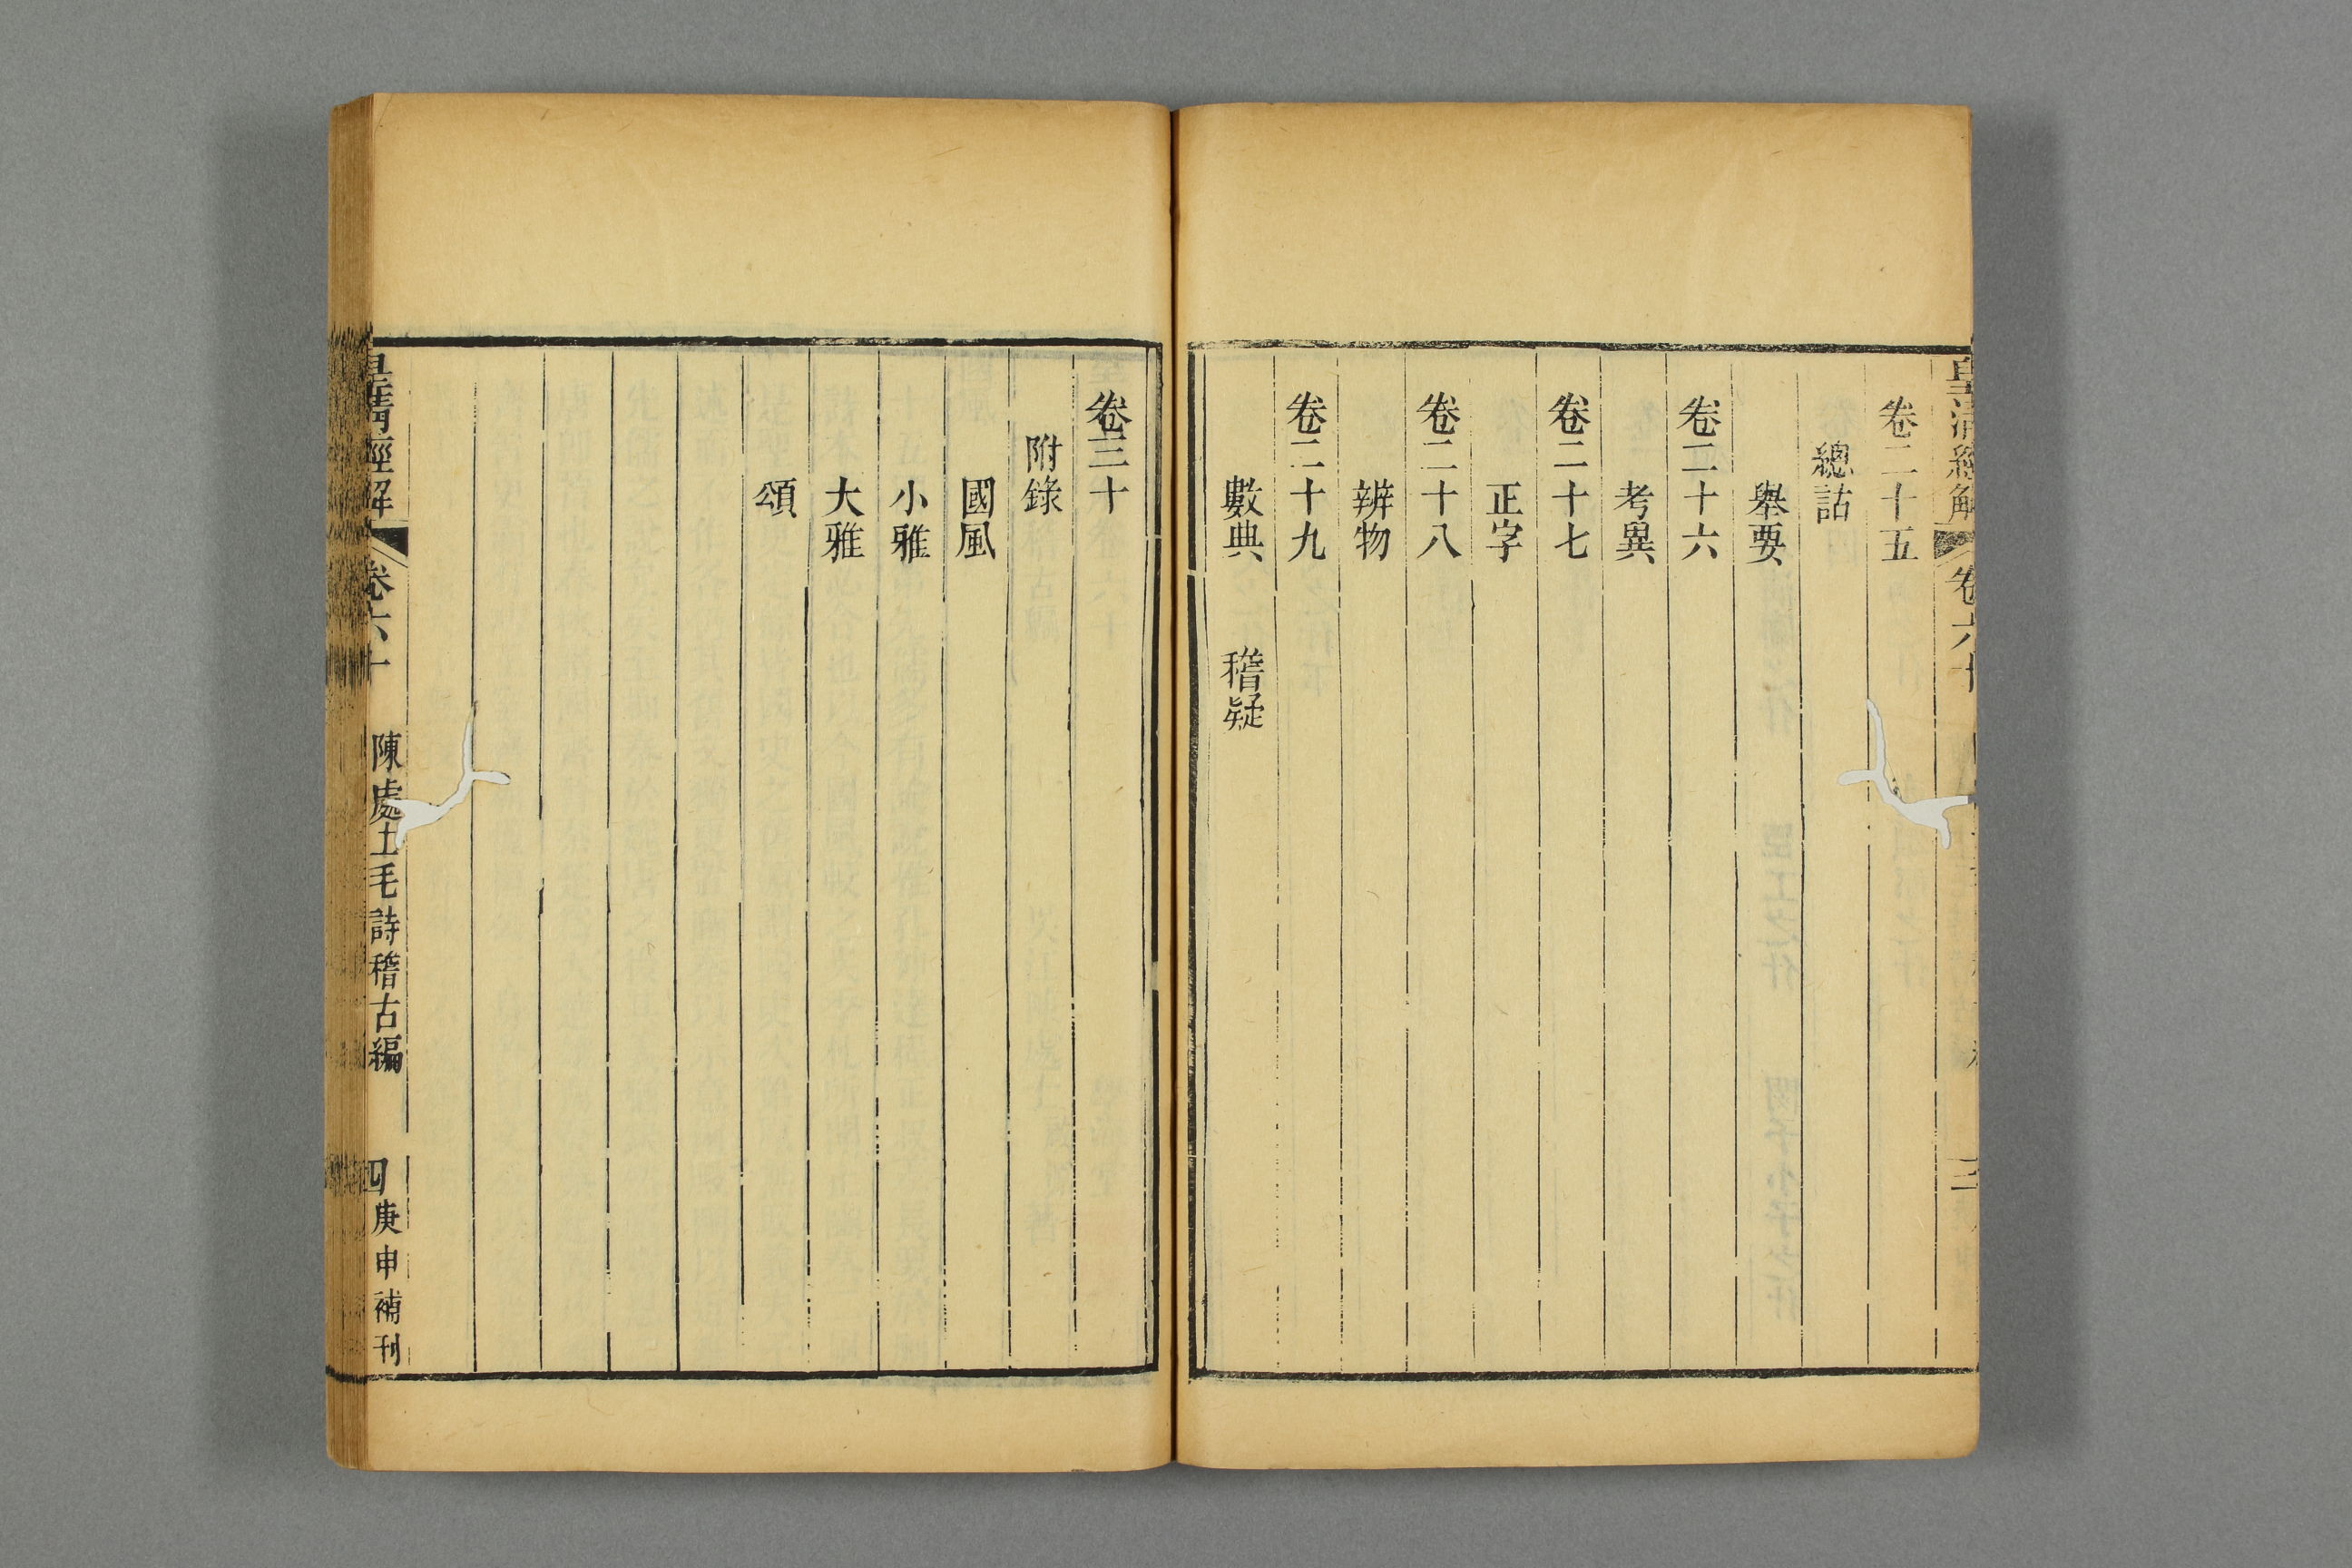 皇清經解 卷六十
三
卷二十五
總詁
舉要
卷二十六
考異
卷二十七
正字
卷二十八
辨物
卷二十九
數典 稽疑
卷三十
附錄
國風
小雅
大雅
頌
皇清經解 卷六十 陳處士毛詩稽古編 四 庚申補刊